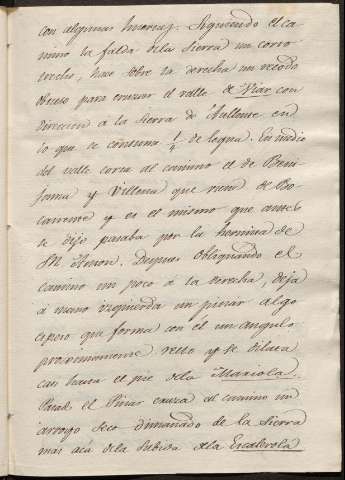 con algunas huertas. Siguiendo el ca-
mino la falda dela Sierra un corto
trecho, hace sobre la derecha un recodo
obtuso para cruzar el valle de Viar con
direccion a la Sierra de
lo que se consume 1/4 de legua. En medio
del valle corta al camino el de Beni-
jama y Villena que viene de Bo-
cairente y es el mismo que antes
se dijo pasaba por la hermita de
Sn. Anton. Despues obliquando el
camino un poco a la derecha, deja
á mano yzquierda un pinar algo
espeso que forma con él un angulo
proximamente recto y se dilata
casi hasta el pie dela Mariola.
Pasado el Pinar cruza el camino un
arroyo seco dimanado de la Sierra
mas acá dela Subida dela Escalerola